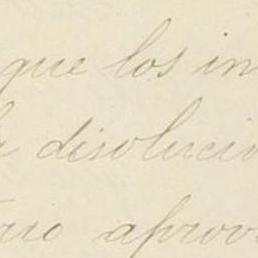 que los in
disolucio
aprov